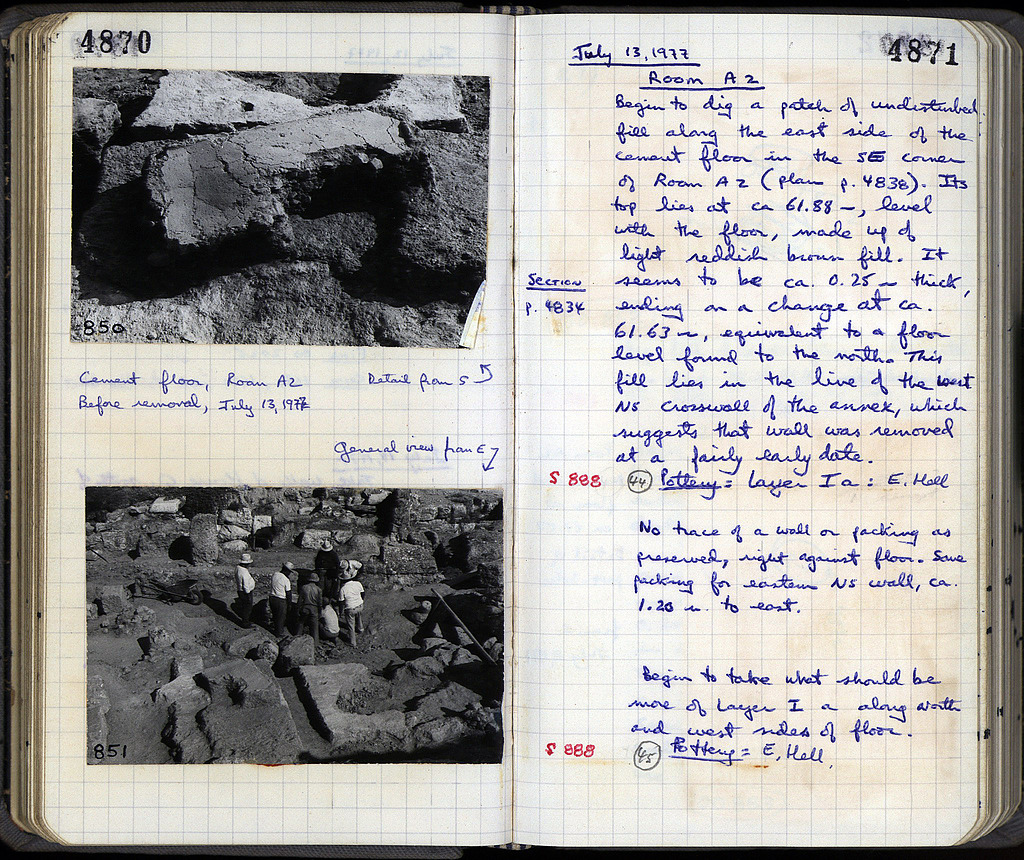 4870
850
Cement floor, Room A2
Detail from S
Before removal, July 13, 1977
General view from E
851
4871
July 13, 1977
Room A2
Begin to dig a patch of undisturbed
fill along the east side of the
cement floor in the SE corner
of Room A2 (plan p. 4838). Its
top lies at ca 61.88 m, level
with the floor, made up of
light reddish brown fill. It
Section
seems to be ca. 0.25 m thick,
p. 4834
ending on a change at ca.
61.63 m, equivalent to a floor
level found to the north. This
fill lies in the line of the west
NS crosswall of the annex, which
suggests that wall was removed
at a fairly early date.
S 888
44 Pottery = Layer I a : E. Hell
No trace of a wall or packing as
preserved, right against floor. Some
packing for eastern NS wall, ca.
1.20 m. to east.
Begin to take what should be
more of Layer I a along north
and west sides of floor.
S 888
45 Pottery = E. Hell.